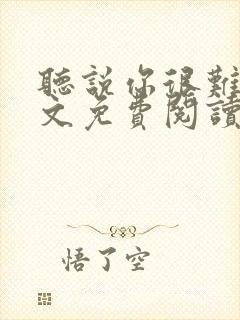 聽說你很難
文免費閱讀
悟了空